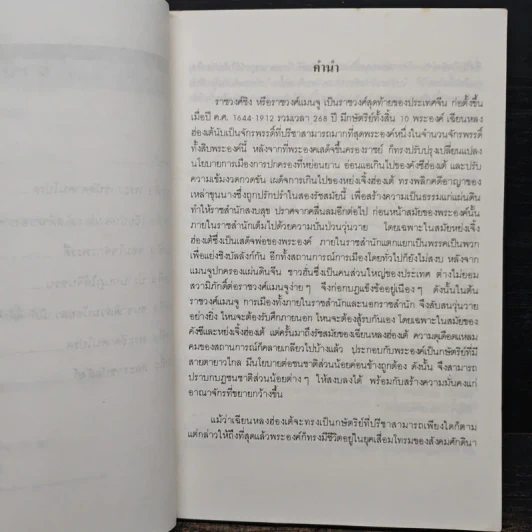 คำนำ
ราชวงศ์ชิง หรือราชวงศ์แมนจู เป็นราชวงศ์สุดท้ายของประเทศจีน ก่อตั้งขึ้น
เมื่อปี ค.ศ. 1644-1912 รวมเวลา 268 ปี มีกษัตริย์ทั้งสิ้น 10 พระองค์ เฉียนหลง
ฮ่องเต้นับเป็นจักรพรรดิ์ที่ปรีชาสามารถมากที่สุดพระองค์หนึ่งในจำนวนจักรพรรดิ์
ทั้งสิบพระองค์นี้ หลังจากที่พระองค์เสด็จขึ้นครองราชย์ ก็ทรงปรับปรุงเปลี่ยนแปลง
นโยบายการเมืองการปกครองที่หย่อนยาน อ่อนแอเกินไปของคังซีฮ่องเต้ และปรับ
ความเข้มงวดกวดขัน เผด็จการเกินไปของหย่งเจิ้งฮ่องเต้ ทรงพลิกคดีอาญาของ
เหล่าขุนนางซึ่งถูกปรักปรำในสองรัชสมัยนี้ เพื่อสร้างความเป็นธรรมแก่แผ่นดิน
ทำให้ราชสำนักสงบสุข ปราศจากคลื่นลมอีกต่อไป ก่อนหน้าสมัยของพระองค์นั้น
ภายในราชสำนักเต็มไปด้วยความปั่นป่วนวุ่นวาย โดยเฉพาะในสมัยหย่งเจิ้ง
ฮ่องเต้ซึ่งเป็นเสด็จพ่อของพระองค์ ภายในราชสำนักแตกแยกเป็นพรรคเป็นพวก
เพื่อแย่งชิงบัลลังก์กัน อีกทั้งสถานการณ์การเมืองโดยทั่วไปก็ยังไม่สงบ หลังจาก
แมนจูปกครองแผ่นดินจีน ชาวฮั่นซึ่งเป็นคนส่วนใหญ่ของประเทศ ต่างไม่ยอม
สวามิภักดิ์ต่อราชวงศ์แมนจูง่าย ๆ จึงก่อกบฏแข็งข้ออยู่เนือง ๆ ดังนั้นในต้น
ราชวงศ์แมนจู การเมืองทั้งภายในราชสำนักและนอกราชสำนัก จึงสับสนวุ่นวาย
อย่างยิ่ง ไหนจะต้องรับศึกภายนอก ไหนจะต้องสู้รบกันเอง โดยเฉพาะในสมัยของ
คังซีและหย่งเจิ้งฮ่องเต้ แต่ครั้นมาถึงรัชสมัยของเฉียนหลงฮ่องเต้ ความดุเดือดแหลม
คมของสถานการณ์ก็คลายเกลียวไปบ้างแล้ว ประกอบกับพระองค์เป็นกษัตริย์ที่มี
สายตายาวไกล มีนโยบายต่อชนชาติส่วนน้อยค่อนข้างถูกต้อง ดังนั้น จึงสามารถ
ปราบกบฏชนชาติส่วนน้อยต่าง ๆ ให้สงบลงได้ พร้อมกับสร้างความมั่นคงแก่
อาณาจักรที่ขยายกว้างขึ้น
แม้ว่าเฉียนหลงฮ่องเต้จะทรงเป็นกษัตริย์ที่ปรีชาสามารถเพียงใดก็ตาม
แต่กล่าวให้ถึงที่สุดแล้วพระองค์ก็ทรงมีชีวิตอยู่ในยุคเสื่อมโทรมของสังคมศักดินา